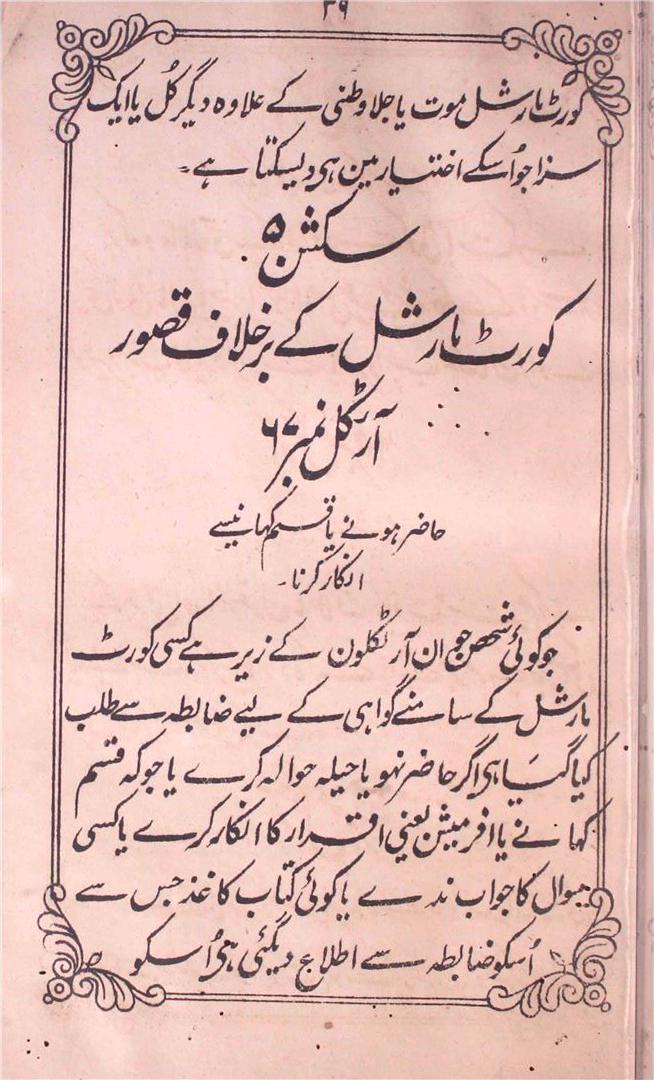 ۳۹
کورٹ مارشل موت یا جلاوطنی کے علاوہ دیگر کُل یا ایک
سزا جو اُسکے اختیار مین ہی دیسکتا ہے۔
سکشن ۵
کورٹ مارشل کے برخلاف قصور
آرٹکل نمبر ۶۷
حاضر ہونے یا قسم کہانیسے
انکار کرنا۔
جو کوئی شخص جو ان آرٹکلون کے زیر ہے کسی کورٹ
مارشل کے سامنے گواہی کے لیے ضابطہ سے طلب
کیا گیا ہی اگر حاضر نہو یا حیلہ حوالہ کرے یا جو کہ قسم
کہانے یا افرمیشن یعنی اقرار کا انکار کرے یا کسی
سوال کا جواب ندے یا کوئی کتاب کاغذ جس سے
اُسکو ضابطہ سے اطلاع دیگئی ہی اُسکو